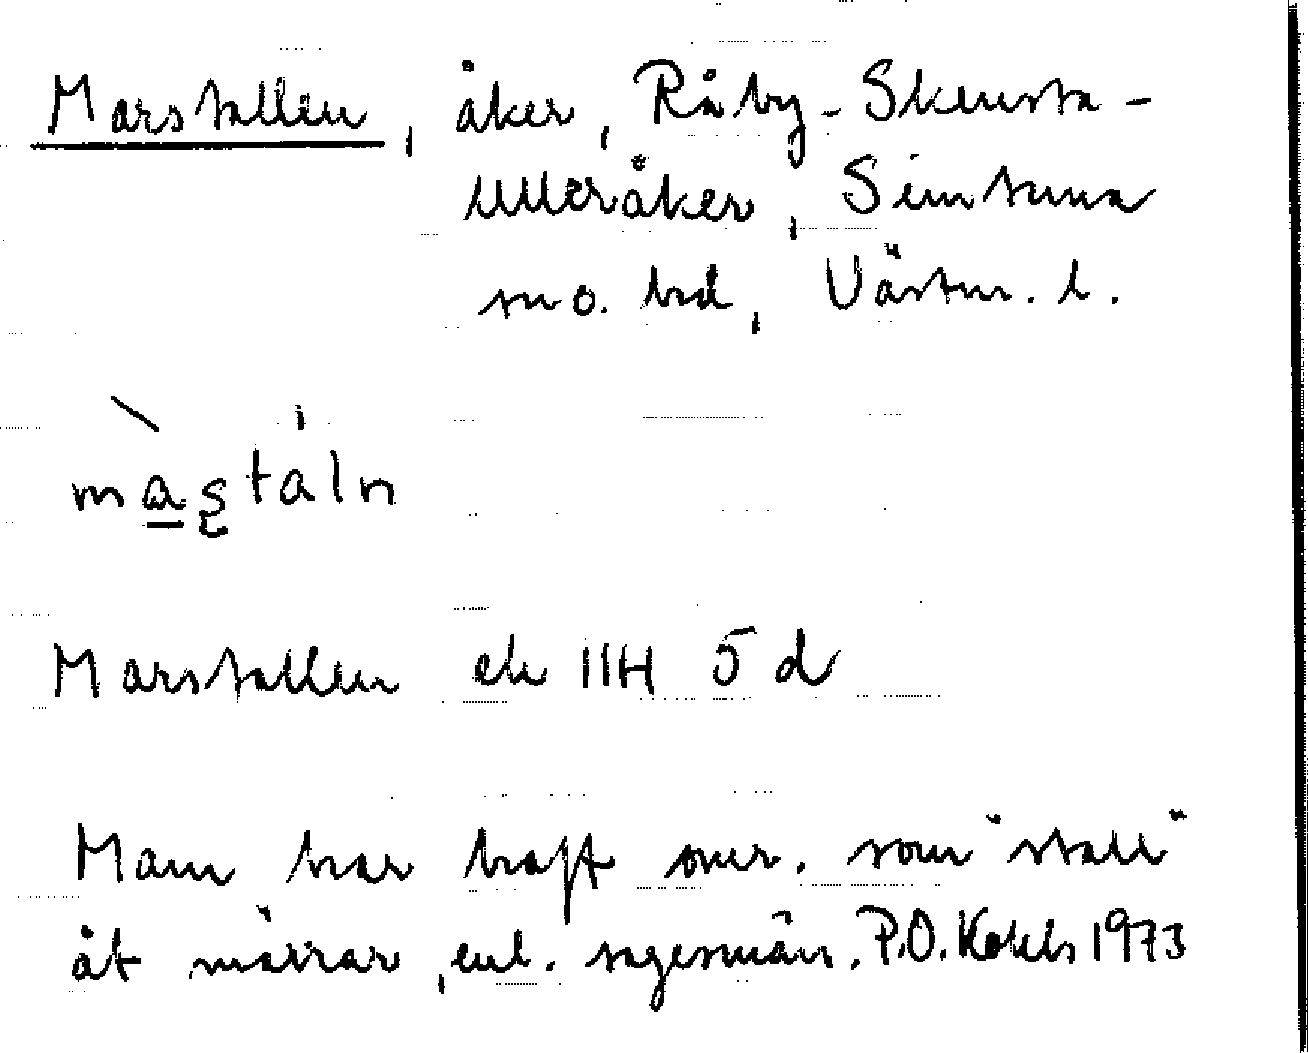 Marstallen, åker, Råby-Skensta-
Ulleråker, Simtuna
sn o. hd, Västm. l.
màs̱táln
Marstallen ek 11H 5 d
Man har haft omr. som "stall"
åt märrar, enl. sagesmän. P.O. 1973